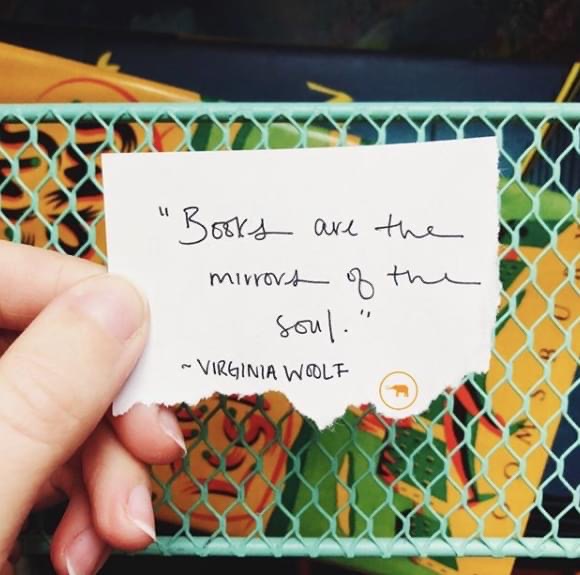 "Books are the
mirrors of the
soul."
~VIRGINIA WOOLF